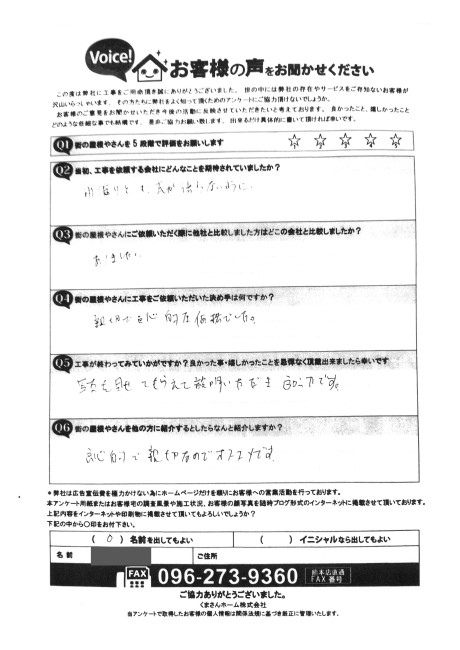 Voice!
お客様の声をお聞かせください
この度は弊社に工事をご用命頂き誠にありがとうございました。世の中には弊社の存在やサービスをご存知ないお客様が
沢山いらっしゃいます。その方たちに弊社をよく知って頂くためのアンケートにご協力頂けないでしょうか。
お客様のご意見をお聞かせいただき今後の活動に反映させていただきたいと考えております。良かったこと、嬉しかったこと
どのような些細な事でも結構です。是非ご協力お願い致します。出来るだけ具体的に書いて頂ければ幸いです。
Q1 街の屋根やさんを5段階で評価をお願いします ☆ ☆ ☆ ☆ ☆
Q2 当初、工事を依頼する会社にどんなことを期待されていましたか？
Q3 街の屋根やさんにご依頼いただく際に他社と比較しました方はどこの会社と比較しましたか？
Q4 街の屋根やさんに工事をご依頼いただいた決め手は何ですか？
Q5 工事が終わってみていかがですか？良かった事・嬉しかったことを忌憚なく頂戴出来ましたら幸いです
Q6 街の屋根やさんを他の方に紹介するとしたらなんと紹介しますか？
良心的で親切なのでオススメです
＊弊社は広告宣伝費を極力かけない為にホームページだけを頼りにお客様への営業活動を行っております。
本アンケート用紙またはお客様宅の調査風景や施工状況、お客様の顔写真を随時ブログ形式のインターネットに掲載させて頂いております。
上記内容をインターネットや印刷物に掲載させて頂いてもよろしいでしょうか？
下記の中から〇印をお付下さい。
( 〇 ) 名前を出してもよい ( ) イニシャルなら出してもよい
名前 ご住所
FAX 096-273-9360 熊本店直通 FAX番号
ご協力ありがとうございました。
くまさんホーム株式会社
当アンケートで取得したお客様の個人情報は関係法規に基づき厳正に管理いたします。